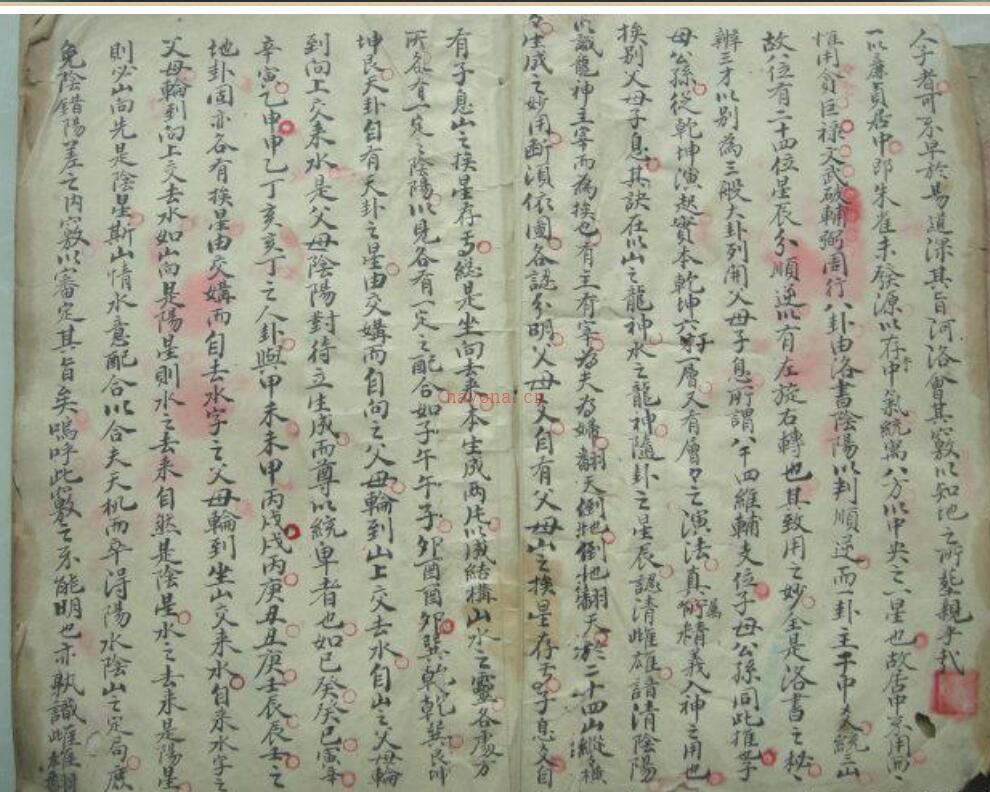 人子者可不卑於易道深其旨河洛會其竅以知地之所墊親乎哉
一以廉貞居中即朱雀未發源以存中氣統寓八方以中央之一星也故居中不用而一
惟用貪巨祿文武破輔弼周行八卦由洛書陰陽以判順逆而一卦主于中爻統三山
故八位有二十四位星辰分順逆以有左旋右轉也其致用之妙全是洛書之秘
辨三才以別為三般大卦列開父母子息所謂八干四維輔支位子母公孫同此推也子
母公孫從乾坤演起實本乾坤六子層又有層之演法真精義入神之用也
挨別父母子息其訣在以山之龍神水之龍神隨卦之星辰認清雌雄請清陰陽
以識龍神主宰而為挨也有主有宰為夫為婦翻天倒地倒地翻天於二十四山縱橫
生成之妙用斷須依圖各認分明父母又自有父母山之挨星存焉子息又自
有子息山之挨星存焉總是坐向去來本生成两片以成結構山水之靈各處方
所各有一定之陰陽以見各有一定之配合如子午午子夘酉酉夘巽乾乾巽艮坤
坤艮天卦自有天卦之星由交媾而自向之父母輪到山上交去水自山之父母輪
到向上交来水是父母陰陽對待立生成而尊以統卑者也如巳癸癸巳寅辛
辛寅乙申申乙丁亥亥丁之人卦與甲未未甲丙戌戌丙庚丑丑庚壬辰辰壬之
地卦固亦各有挨星由交媾而自去水字之父母輪到坐山交来水自来水字之
父母輪到向上交去水如山向是陽星則水之去来自然是陰星水之去来是陽星
則必山向先是陰星斯山情水意配合以合夫天机而卒得陽水陰山之定局庶
免陰錯陽差之内竅以審定其旨矣嗚呼此竅之不能明也亦孰識雌雄
hayona.cn